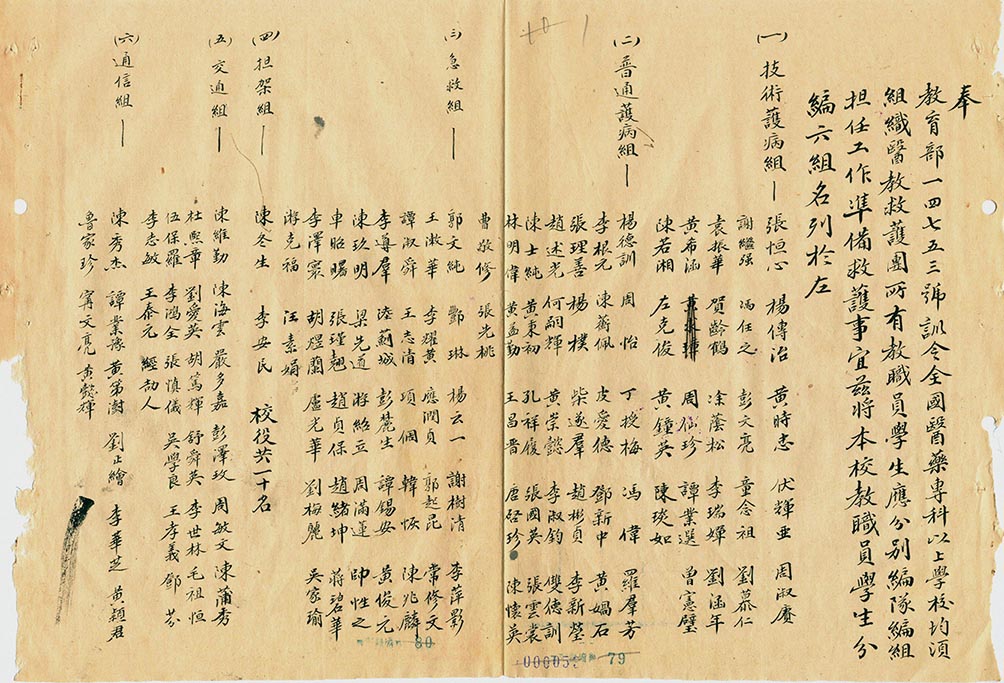 奉
教育部一四七五三號訓令全國醫藥專科以上學校均須
組織醫教救護團所有教職員學生應分別編隊編組
担任工作準備救護事宜茲將本校教職員學生分
編六組名列於左
(一)技術護病組— 張恒心 楊傳治 黃時忠 伏輝亜 周淑賡
謝繼强 馮任之 彭文亮 童念祖 劉慕仁
袁振華 賀齡鶴 涂蔭松 李瑞嬋 劉涵年
黃布涵 周仙珍 譚業選 曾憲璧
陳若湘 左克俊 黃鐘英 陳琰如
(二)普通護病組— 楊德訓 周怡 丁授梅 馮偉 羅羣芳
李根元 陳蘅佩 皮愛德 鄧新中 黃娟石
張理善 楊樸 柴遂羣 趙彬貞 李新瑩
趙述光 何嗣輝 黃崇懿 李淑鈞 雙德訓
陳士純 黃東初 孔祥履 張國英 張雲裳
林明偉 黃孟勤 王昌晋 唐啓珍 陳懷英
曹敬修 張光桃
(三)急救組— 郭文純 酆琳 楊云一 謝樹清 李萍影
王漱華 李耀黃 應潤貞 郭起昆 常修文
譚淑舜 王志清 項個 韓恢 陳兆麟
李尊羣 陸蔚城 彭麓生 譚錫安 黃俊元
陳玖明 梁先道 游紹立 周滿蓮 帥性之
車昭曙 張瑾翹 趙貞保 趙緒坤 蔣碧華
李澤寰 胡煜蘭 盧光華 劉梅麗 吴家瑜
游克福 汪素娟
(四)担架組— 陳冬生 李安民 校役共一十名
(五)交通組— 陳維勤 陳海雲 嚴多嘉 彭澤玫 周敏文 陳蒲秀
杜熙章 劉愛英 胡篤輝 舒舜英 李世林 毛祖恒
伍保羅 李鴻全 張慎儀 吴學良 王孝義 鄧芬
李志敏 王泰元 經劼人
(六)通信組— 陳秀杰 譚業豫 黃第澍 劉正繪 李華芝 黃穎君
魯家珍 甯文亮 黃懿輝
80
79